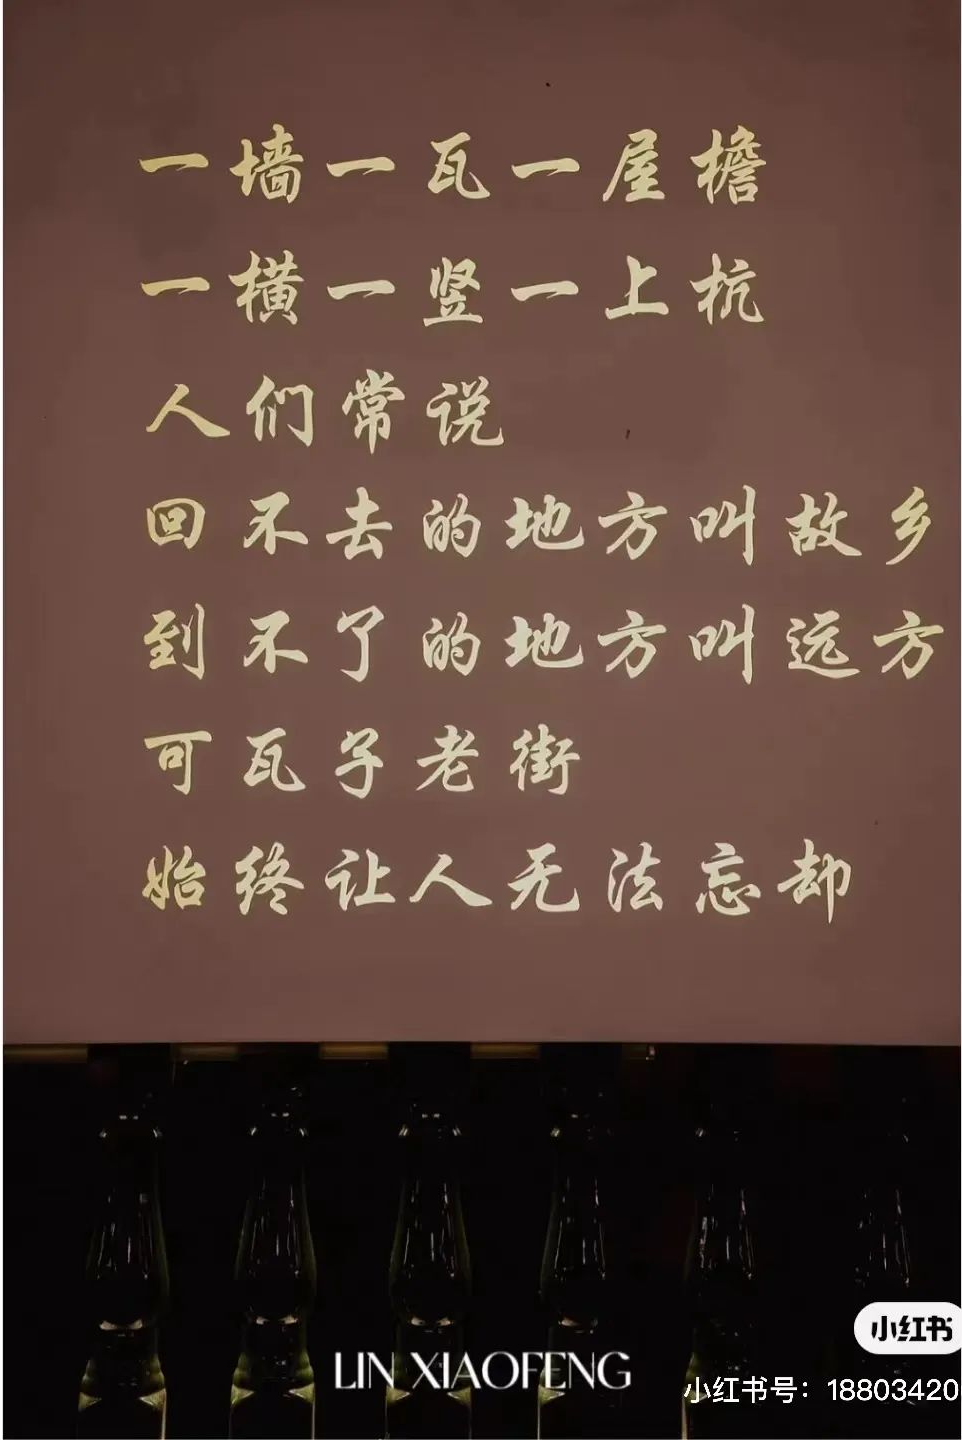 一墙一瓦一屋檐
一横一竖一上杭
人们常说
回不去的地方叫故乡
到不了的地方叫远方
可瓦子老街
始终让人无法忘却
LIN XIAOFENG
小红书
小红书号：18803420